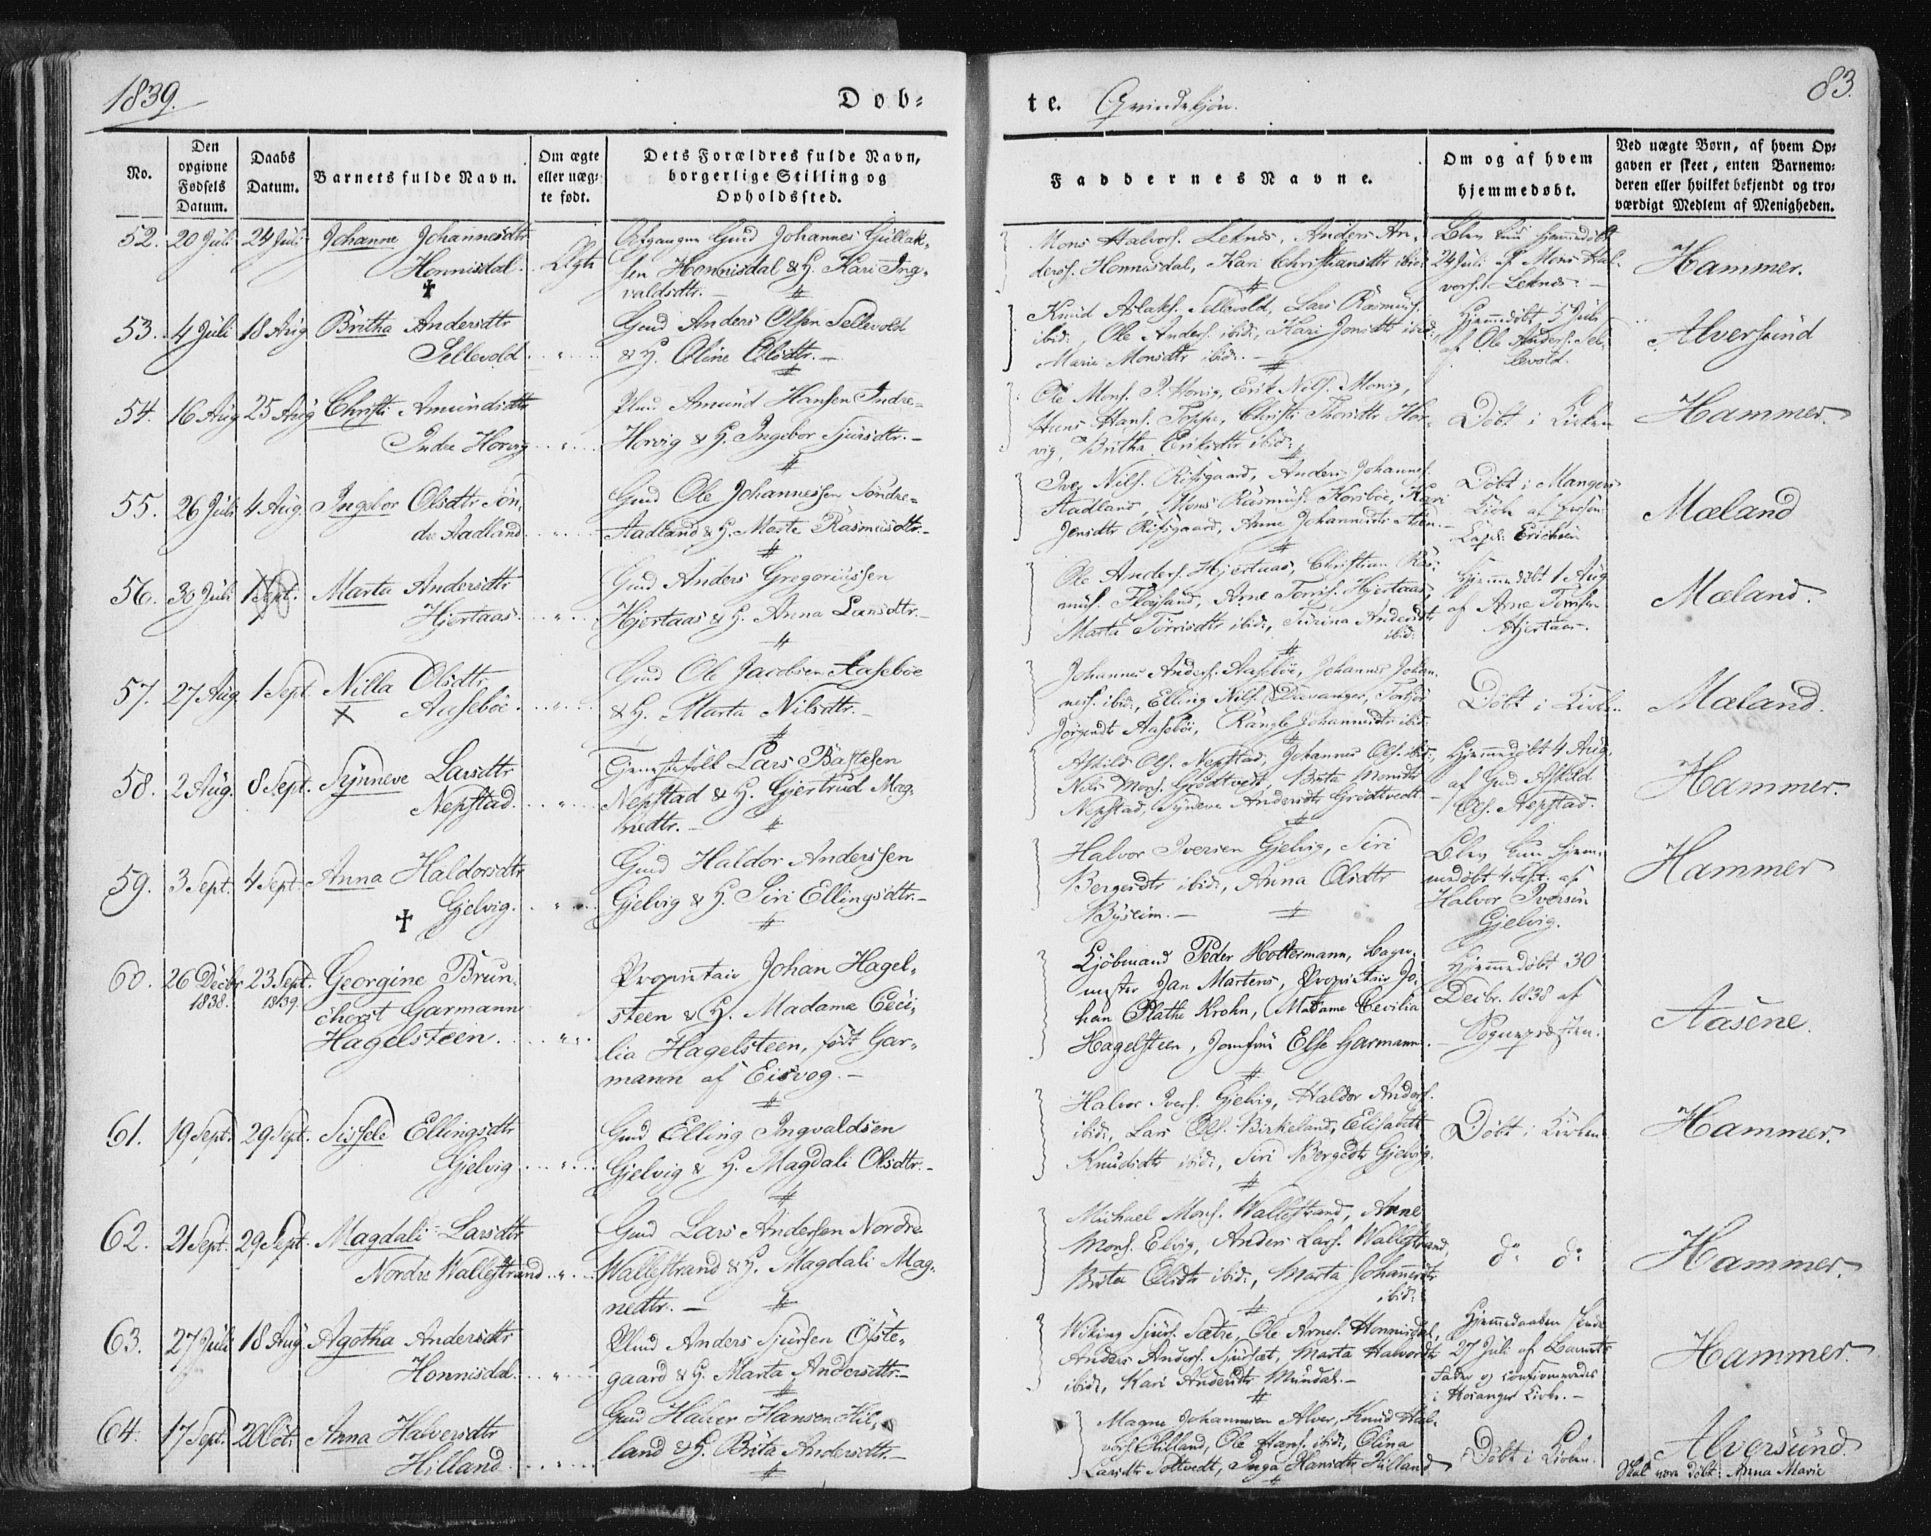 1839.
Döb-
te. Qvindekjön.
83.
No.
Den opgivne Fødsels Datum.
Daabs Datum.
Barnets fulde Navn.
Om ægte eller uæg-te født.
Dets Forældres fulde Navn, borgerlige Stilling og Opholdssted.
Faddernes Navne.
Om og af hvem hjemmedøbt.
Ved uægte Børn, af hvem Op-gaven er skeet, enten Barnemo-deren eller hvilket bekjendt og tro-værdigt Medlem af Menigheden.
52. 20 Juli 24 Juli Johanne Johannesdtr
Honnisdal. Ægte
Gmd Johannes Gullak-
sen Honnisdal & H. Kari Ing-
valdsdtr.
Mons Halvors. Leknes, Anders An-
ders. Honnisdal, Kari Christiansdtr ibid.
Blev kun hjemmedöbt
24 Juli af Mons Hal-
vors. Leknes.
Hammer.
53. 4 Juli 18 Aug Britha Andersdtr
Sellevold
Gmd Anders Olsen Sellevold
& H. Oline Olsdtr.
Knud Aslaks. Sellevold, Lars Rasmus.
ibid:, Ole Anders. ibid:, Kari Jonsdtr ibid:
Marie Monsdtr ibid:
Hjemmedöbt 5 Juli
af Ole Anders. Sel-
levold.
Alversund
54. 16 Aug 25 Aug Christi Amundsdtr
Indre Horvig
Amund Hansen Indre-
Horvig & H. Ingebor Sjursdtr.
Ole Mons. Erik Nils.
Hans Hans. Toppe, Christi Thorsdtr Hor-
vig, Britha Eriksdtr ibid:
Döbt i Kirken
Hammer.
55. 26 Juli 4 Aug. Ingebor Olsdtr Sön-
dre Aadland
Gmd Ole Johannessen Söndre-
Aadland & H. Marte Rasmusdtr.
Iver Nils. Risgaard, Anders Johannes.
Aadland, Mons Rasmus. Kari
Jensdtr Risgaard, Anne Johannesdtr
Döbt i Manger
Kirke af
Cap: Erichsen
Mæland
56. 30 Juli 1 Sept. Marta Andersdtr
Hjertaas.
Gmd Anders Gregoriussen
Hjertaas & H. Anna Larsdtr.
Ole Anders. Hjertaas, Christian Ras-
mus. Arne Torris. Hjertaas,
Marta Torrisdtr ibid:, Andersdtr
ibid:
Hjemmedöbt 1 Aug
af Arne Torrisen
Hjertaas.
Mæland.
57. 27 Aug. 1 Sept. Nilla Olsdtr
Aaseböe.
Gmd Ole Jacobsen Aaseböe
& H. Marta Nilsdtr.
Johannes Anders. Aaseböe, Johannes Johan-
nes. ibid:, Elling Nils.
Aaseböe, Johannesdtr ibid.
Döbt i Kirken
Mæland.
58. 2 Aug. 8 Sept. Synneve Larsdtr
Nepstad.
Tjenestefolk Lars Bastesen
Nepstad & H. Gjertrud Mag-
nedtr.
Askild Ols. Nepstad, Johannes Ols. ibid:,
Nils Grödtvedt, Brita Monsdtr
Nepstad, Synneve Andersdtr Grödtvedt
Hjemmedöbt 4 Aug.
af Gmd Askild
Ols. Nepstad.
Hammer.
59. 3 Sept. 4 Sept. Anna Haldorsdtr
Gjelvig.
Gmd Haldor Anderssen
Gjelvig & H. Siri Ellingsdtr.
Halvor Iversen Gjelvig, Siri
Bergesdtr ibid:, Anna Olsdtr
Byseim.
Blev kun hjem-
medöbt 4 Sept. af
Halvor Iversen
Gjelvig.
Hammer
60. 26 Decbr 1838. 23 Sept. 1839. Georgine Brun-
chorst Garmann
Hagelsteen.
Proprietair Johan Hagel-
steen & H. Madame Ceci-
lia Hagelsteen, født Gar-
mann af Eisvog.
Kjöbmand Peder Holtermann, Bager-
mester Jan Martens, Proprietair Jo-
han Plathe Krohn, Madame Cecilia
Hagelsteen, Jomfru Else Garmann.
Hjemmedöbt 30
Decbr. 1838 af
Sognepresten.
Aasene.
61. 19 Sept. 29 Sept. Sissele Ellingsdtr
Gjelvig
Gmd Elling Ingvaldsen
Gjelvig & H. Magdali Olsdtr.
Halvor Ivers. Gjelvig, Haldor Anders.
ibid:, Lars Ols. Birkeland, Elisabeth
Knudsdtr ibid:, Siri Bergesdtr Gjelvig.
Döbt i Kirken
Hammer.
62. 21 Sept. 29 Sept. Magdali Larsdtr
Nordre Wallestrand
Gmd Lars Andersen Nordre
Wallestrand & H. Magdali Mag-
nedtr.
Michael Mons. Wallestrand, Anne
Mons. Elvig, Anders Lars. Wallestrand,
Brita Olsdtr ibid:, Marta Johannesdtr
ibid:
do do
Hammer.
63. 27 Juli 18 Aug. Agotha Andersdtr
Honnisdal.
Anders Sjursen Öste-
gaard & H. Marta Andersdtr.
Wiking Sjurs. Sætre, Ole Arnes. Honnisdal,
Anders Anders. Marta Halvorsdtr
ibid:, Kari Andersdtr Mundal.
Hjemmedaaben skede
27 Juli af Barnets
Fader og confirmeredes
i Hosanger Kirke.
Hammer.
64. 17 Sept. 20 Oct. Anna Halversdtr
Hilland
Gmd Halver Hansen Hil-
land & H. Brita Andersdtr.
Magne Johannesen Alver, Knud Hal-
vors. Hilland, Ole Hans. ibid:, Olina
Larsdtr Toftvedt, Inga Hansdtr Hilland
Döbt i Kirken.
Alversund
Skal være döbt: Anna Marie